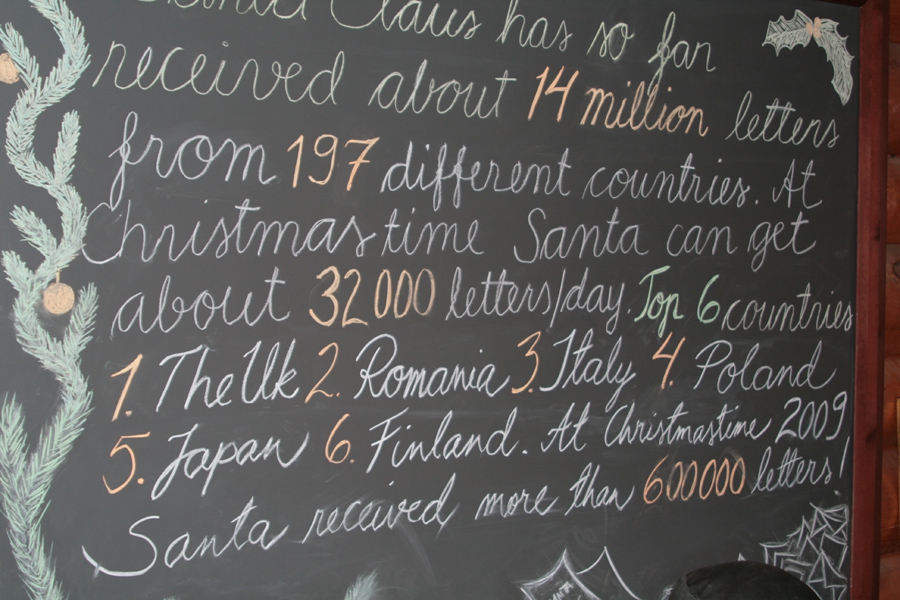 Claus has so far
received about 14 million letters
from 197 different countries. At
Christmastime Santa can get
about 32000 letters/day. Top 6 countries
1. The Uk 2. Romania 3. Italy 4. Poland
5. Japan 6. Finland. At Christmastime 2009
Santa received more than 600000 letters!